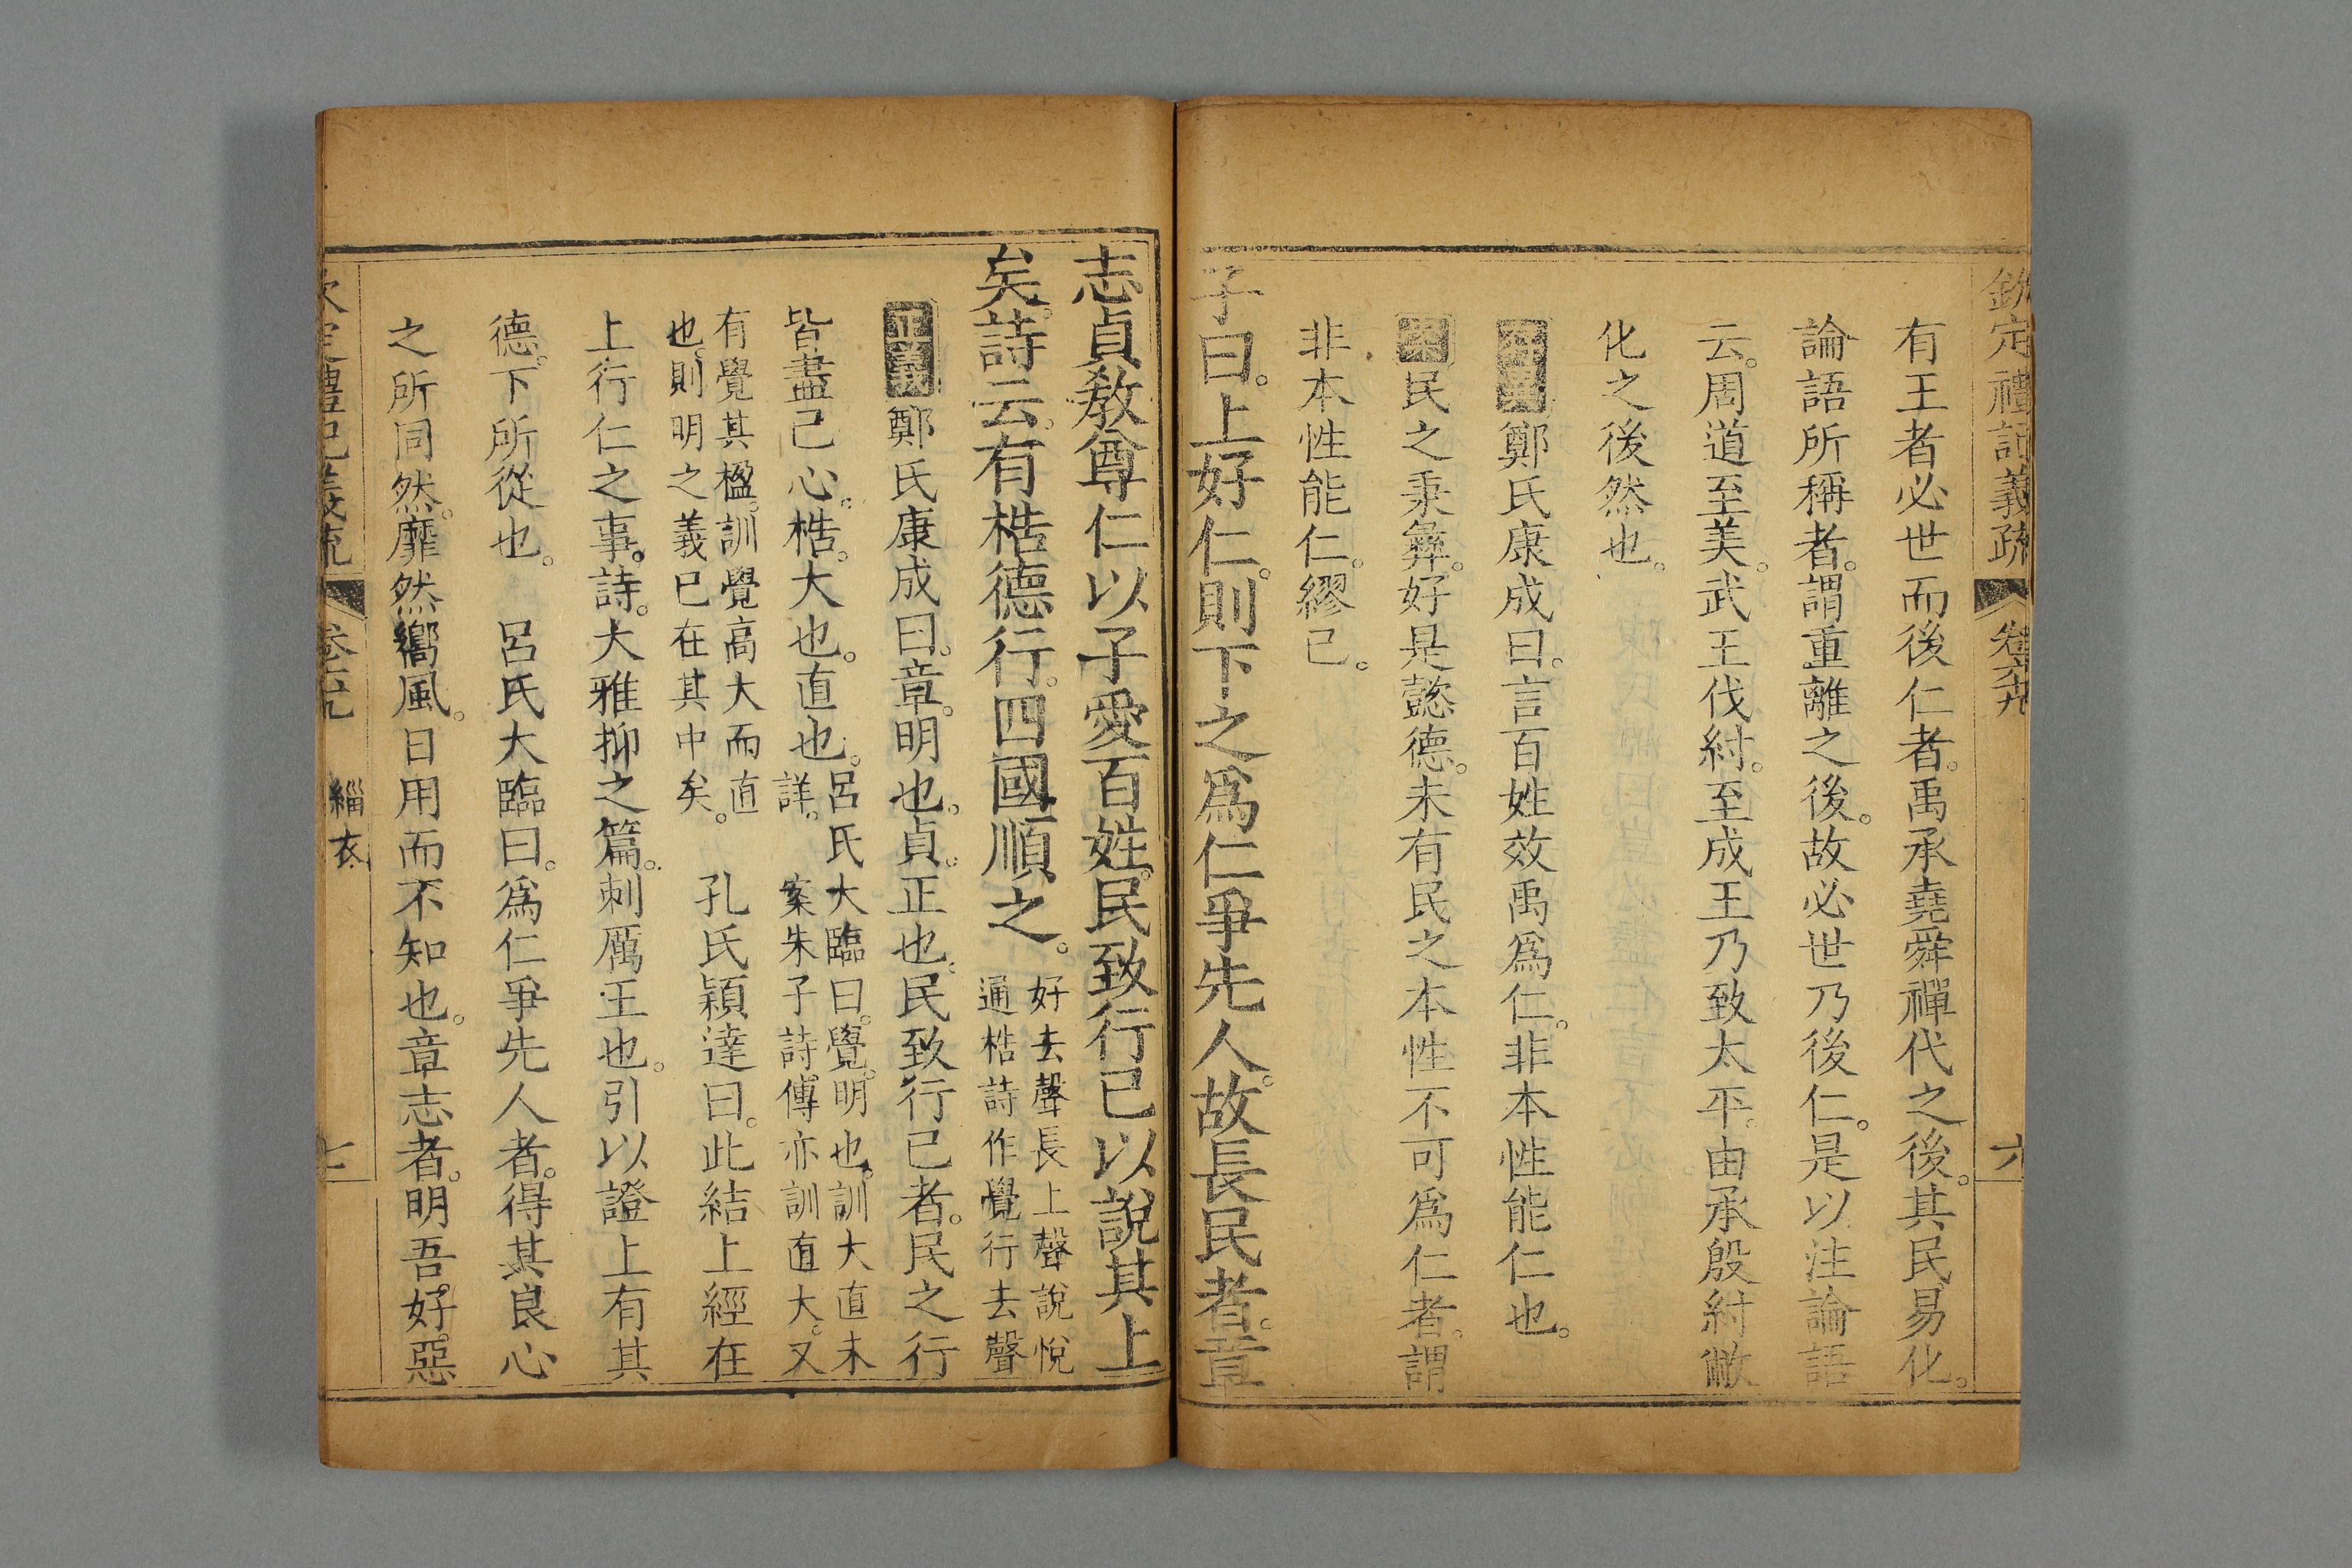 欽定禮記義疏 卷六十九 六
有王者必世而後仁者。禹承堯舜禪代之後。其民易化。
論語所稱者。謂重離之後。故必世乃後仁。是以注論語
云。周道至美。武王伐紂。至成王乃致太平。由承殷紂敝
化之後然也。
鄭氏康成曰。言百姓效禹爲仁。非本性能仁也。
案民之秉彝。好是懿德。未有民之本性不可爲仁者。謂
非本性能仁。繆已。
子曰。上好仁。則下之爲仁爭先人。故長民者。章
志貞教尊仁以子愛百姓。民致行已以說其上
矣。詩云。有梏德行。四國順之。好去聲長上聲說悅
通梏詩作覺行去聲
正義鄭氏康成曰。章。明也。貞。正也。民致行已者。民之行
皆盡己心。梏。大也。直也。呂氏大臨曰。覺。明也。訓大直未
詳。案朱子詩傳亦訓直大。又
有覺其楹。訓覺高大而直
也。則明之義已在其中矣。孔氏穎達曰。此結上經在
上行仁之事。詩。大雅抑之篇。刺厲王也。引以證上有其
德。下所從也。呂氏大臨曰。爲仁爭先人者。得其良心
之所同然。靡然嚮風。日用而不知也。章志者。明吾好惡
欽定禮記義疏 卷六十九 緇衣 七